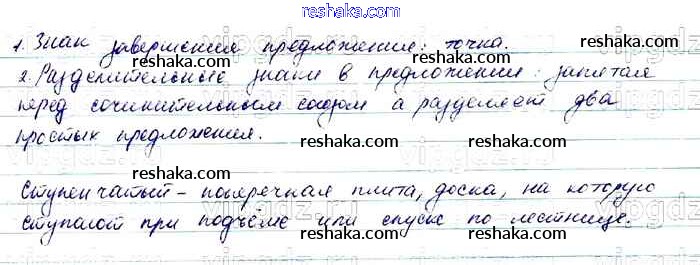 reshaka.com
1. Знак завершения предложения: точка.
reshaka.com reshaka.com
2. Разделительные знаки в предложении: запятая
перед сочинительным союзом а разделяет два
reshaka.com reshaka.com
простых предложения.
reshaka.com reshaka.com
Ступенчатый – поперечная плита, доска, на которую
reshaka.com reshaka.com
ступают при подъёме или спуске по лестнице.
reshaka.com reshaka.com
reshaka.com